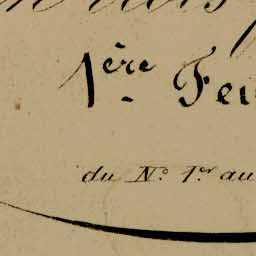 1ère Feu
du N.o 1.er au